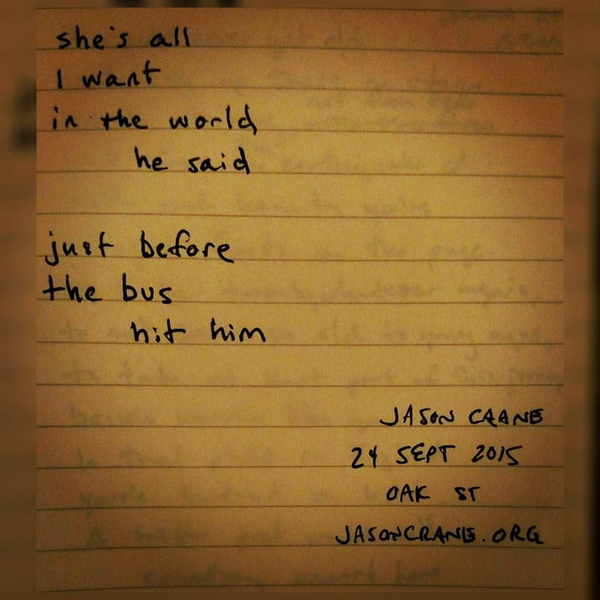 she's all
I want
in the world
he said
just before
the bus
hit him
JASON CRANE
24 SEPT 2015
OAK ST
JASONCRANE.ORG